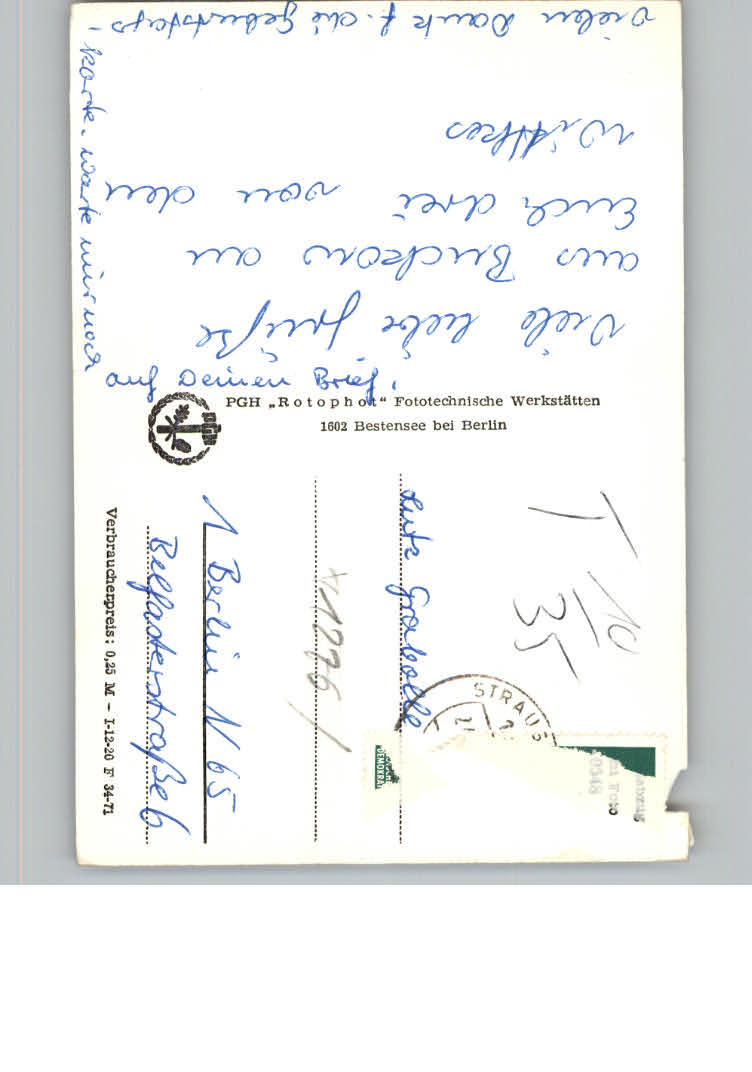 Viele liebe Grüße
aus Buckow an
Euch drei von den
Wittkes
Vielen Dank f. die Geburtstags-
karte. Warte nur noch
auf Deinen Brief!
PGH „Rotophot“ Fototechnische Werkstätten
1602 Bestensee bei Berlin
PGH
T 10
35
Lutz Grabolle
1276
1 Berlin N 65
Belfasterstraße 6
Verbraucherpreis: 0,25 M – I-12-20 F 34-71
STRAUS
DEMOKRAT
Foto
10348